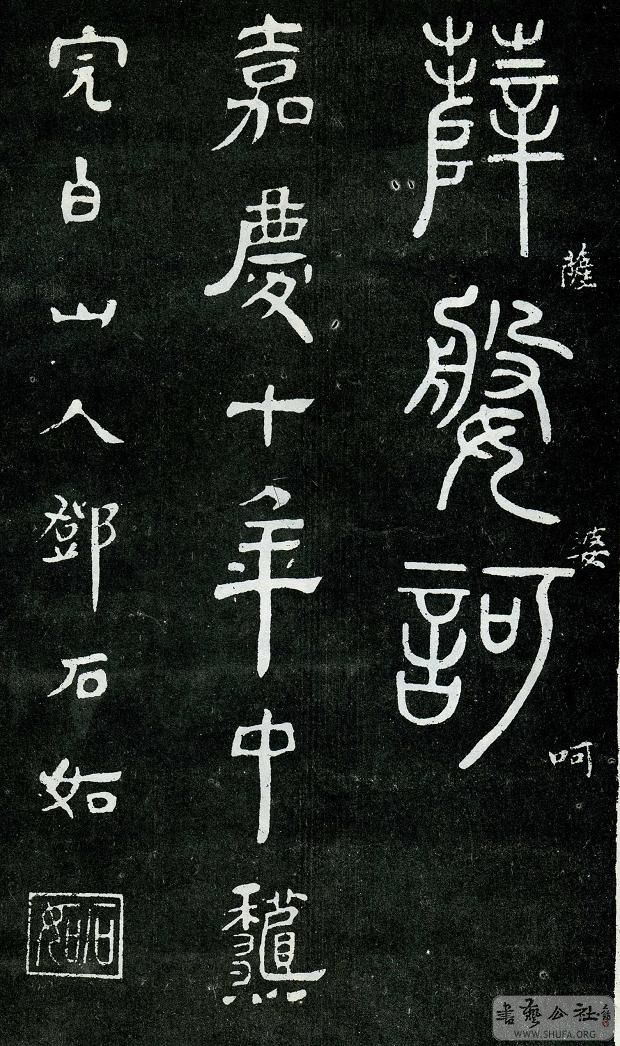 薩婆呵
薛媻訶
嘉慶十年中
完白山人鄧石如
石如
書藝公社
WWW.SHUFA.ORG